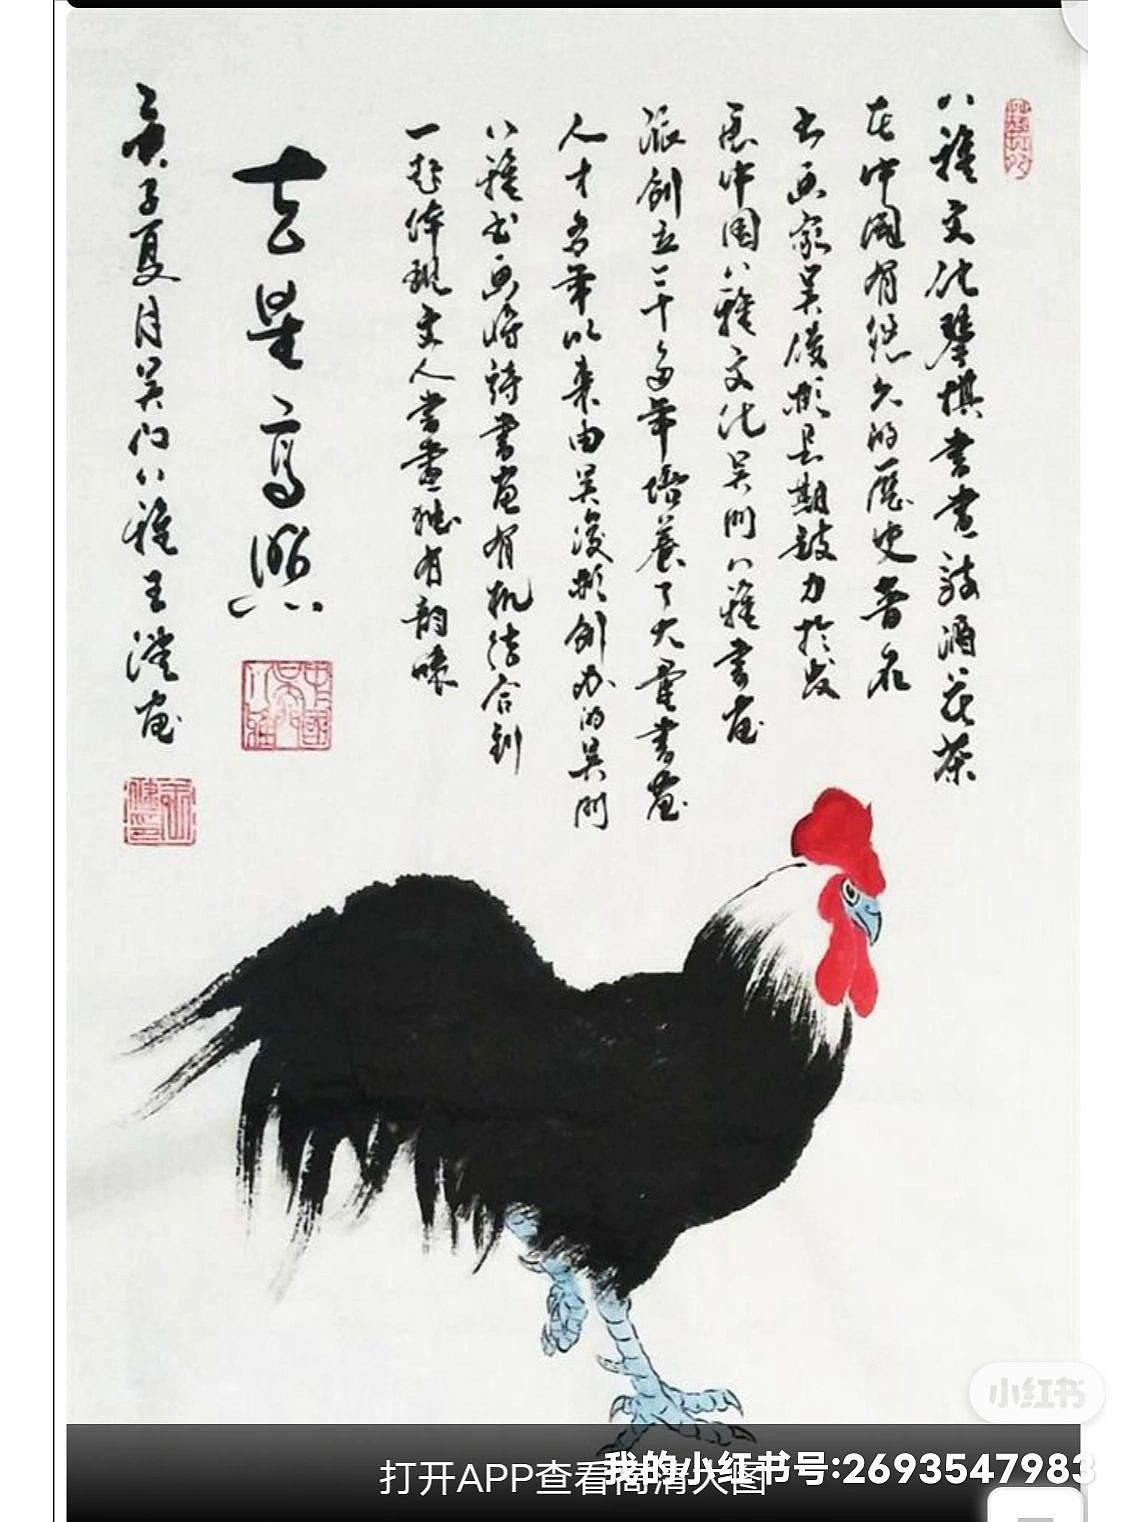 八雅文化琴棋书画诗酒花茶
在中国有悠久的历史著名
书画家吴俊彬长期致力於发
展中国八雅文化吴门八雅书画
派创立三十多年培养了大量书画
人才多年以来由吴俊彬创办的吴门
八雅书画将诗书画有机结合到
一起体现文人书画独有韵味
吉星高照
庚子夏月吴门八雅王 画
中国吴门八雅
小红书
打开APP查看高清大图
我的小红书号:2693547983